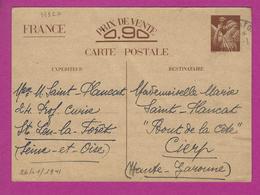 33527
FRANCE
PRIX DE VENTE
0,90
CARTE POSTALE
EXPÉDITEUR
DESTINATAIRE
M. Saint-Plancat
Prof. Curie
St Leu-la-Forêt
(Seine-et-Oise)
Mademoiselle Marie
Saint-Plancat
"Bout de la Côte"
Cierp
(Haute-Garonne)
1941